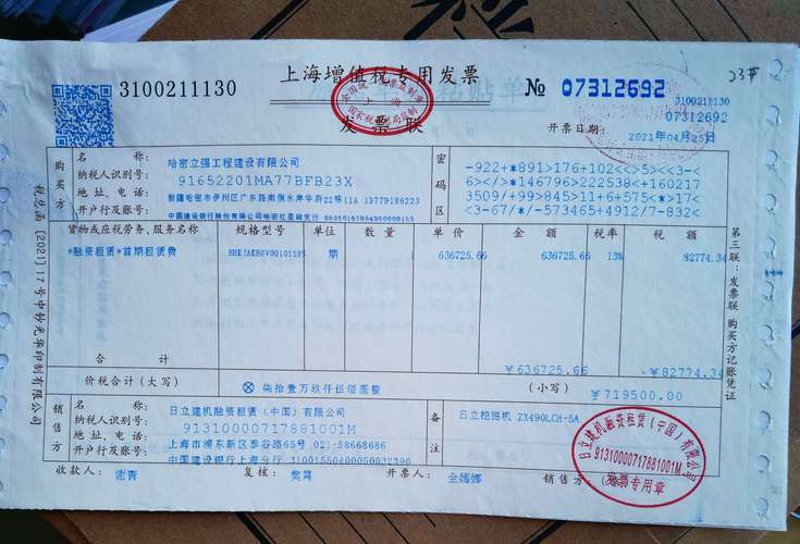 3100211130
上海增值税专用发票
发票联
№ 07312692
23#
3100211130
07312692
开票日期: 2021年04月25日
税总函 [2021] 17号中钞光华印制有限公司
购买方
名 称: 哈密立强工程建设有限公司
纳税人识别号: 91652201MA77BFB23X
地址、电话: 13779186223
开户行及账号:
密码区
-922+*891>176+102<<>5<<3-<
6</>*146796>222538<+160217
3509/+99*845>11+6+575<*>17<
<3-67/*/-573465+4912/7-832<
货物或应税劳务、服务名称 规格型号 单位 数量 单价 金额 税率 税额
*融资租赁*首期租赁费 期 1 636725.66 636725.66 13% 82774.34
合计 ¥636725.66 ¥82774.34
价税合计(大写) ⊗柒拾壹万玖仟伍佰圆整 (小写) ¥719500.00
销售方
名 称: 日立建机融资租赁(中国)有限公司
纳税人识别号: 91310000717881001M
地址、电话: 上海市浦东新区泰谷路65号 021-58668686
开户行及账号: 中国建设银行上海分行 31001550400050032390
备注
日立挖掘机 ZX490LCH-5A
收款人: 谢菁 复核: 樊骂 开票人: 金嫣娜 销售方:
第三联:发票联 购买方记账凭证
日立建机融资租赁(中国)有限公司
91310000717881001M
发票专用章